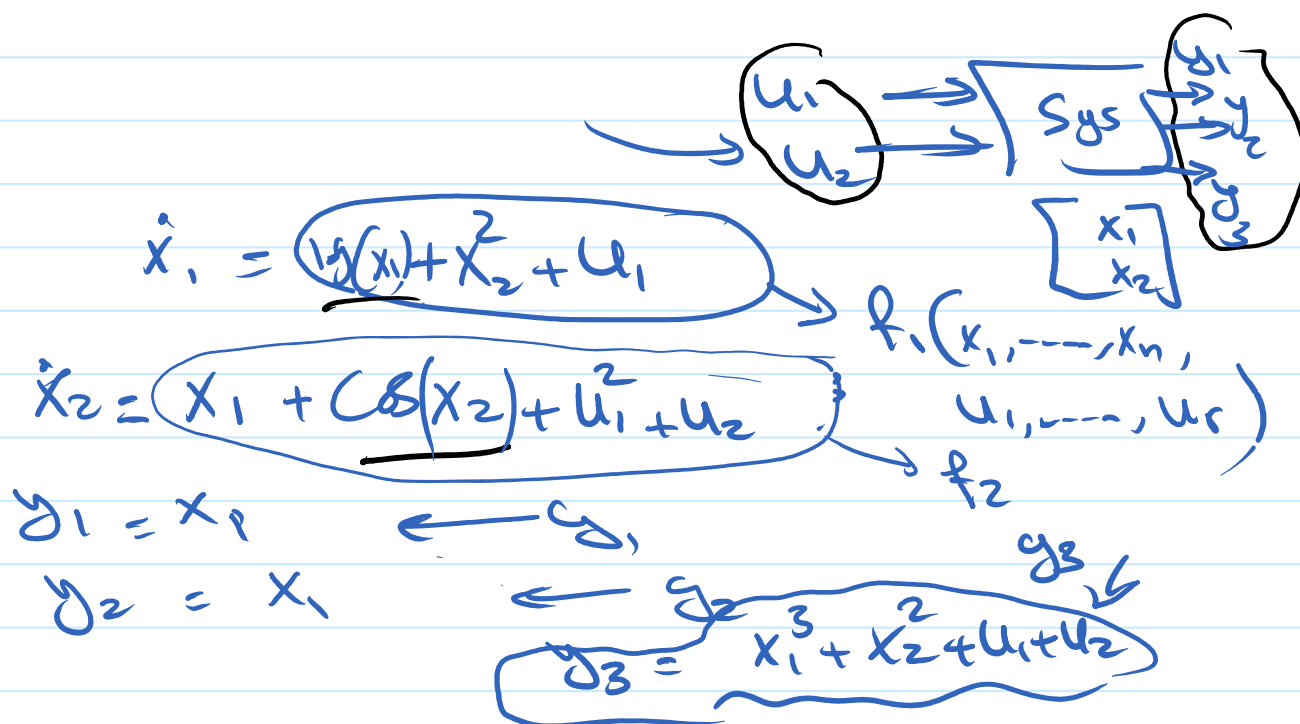 u₁ Sys y₁
u₂ y₂
y₃
ẋ₁ = lg(x₁) + x₂² + u₁
[x₁
x₂]
f₁(x₁, ----, xₙ,
u₁, ----, uᵣ)
ẋ₂ = x₁ + Cos(x₂) + u₁² + u₂
f₂
y₁ = x₁ ← g₁
y₂ = x₁ ← g₂
g₃
y₃ = x₁³ + x₂² + u₁ + u₂